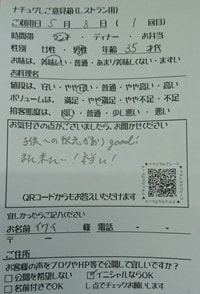 ナチュグレご意見箱(レストラン用)
ご利用日 5 月 8 日 ( 1 回目)
時間帯 ランチ・ディナー・お弁当
性別 女性・男性 年齢 35 才代
お味は、美味しい・普通・あまり美味しくない・まずい
お料理名
値段は、安い・やや安い・普通・やや高い・高い
ボリュームは、満足・やや満足・やや不足・不足
接客態度は、良い・普通・少し悪い・悪い
お気付きの点がございましたら、お聞かせください
子供への
good!
QRコードからもお答えいただけます
宜しかったらご記入ください
お名前 イワイ 様 電話 - -
〒 -
ご住所
お客様の声をブログやHP等で公開して宜しいですか?
□公開を希望しない ☑イニシャルならOK
□名前だけでOK レ点でチェックお願いします